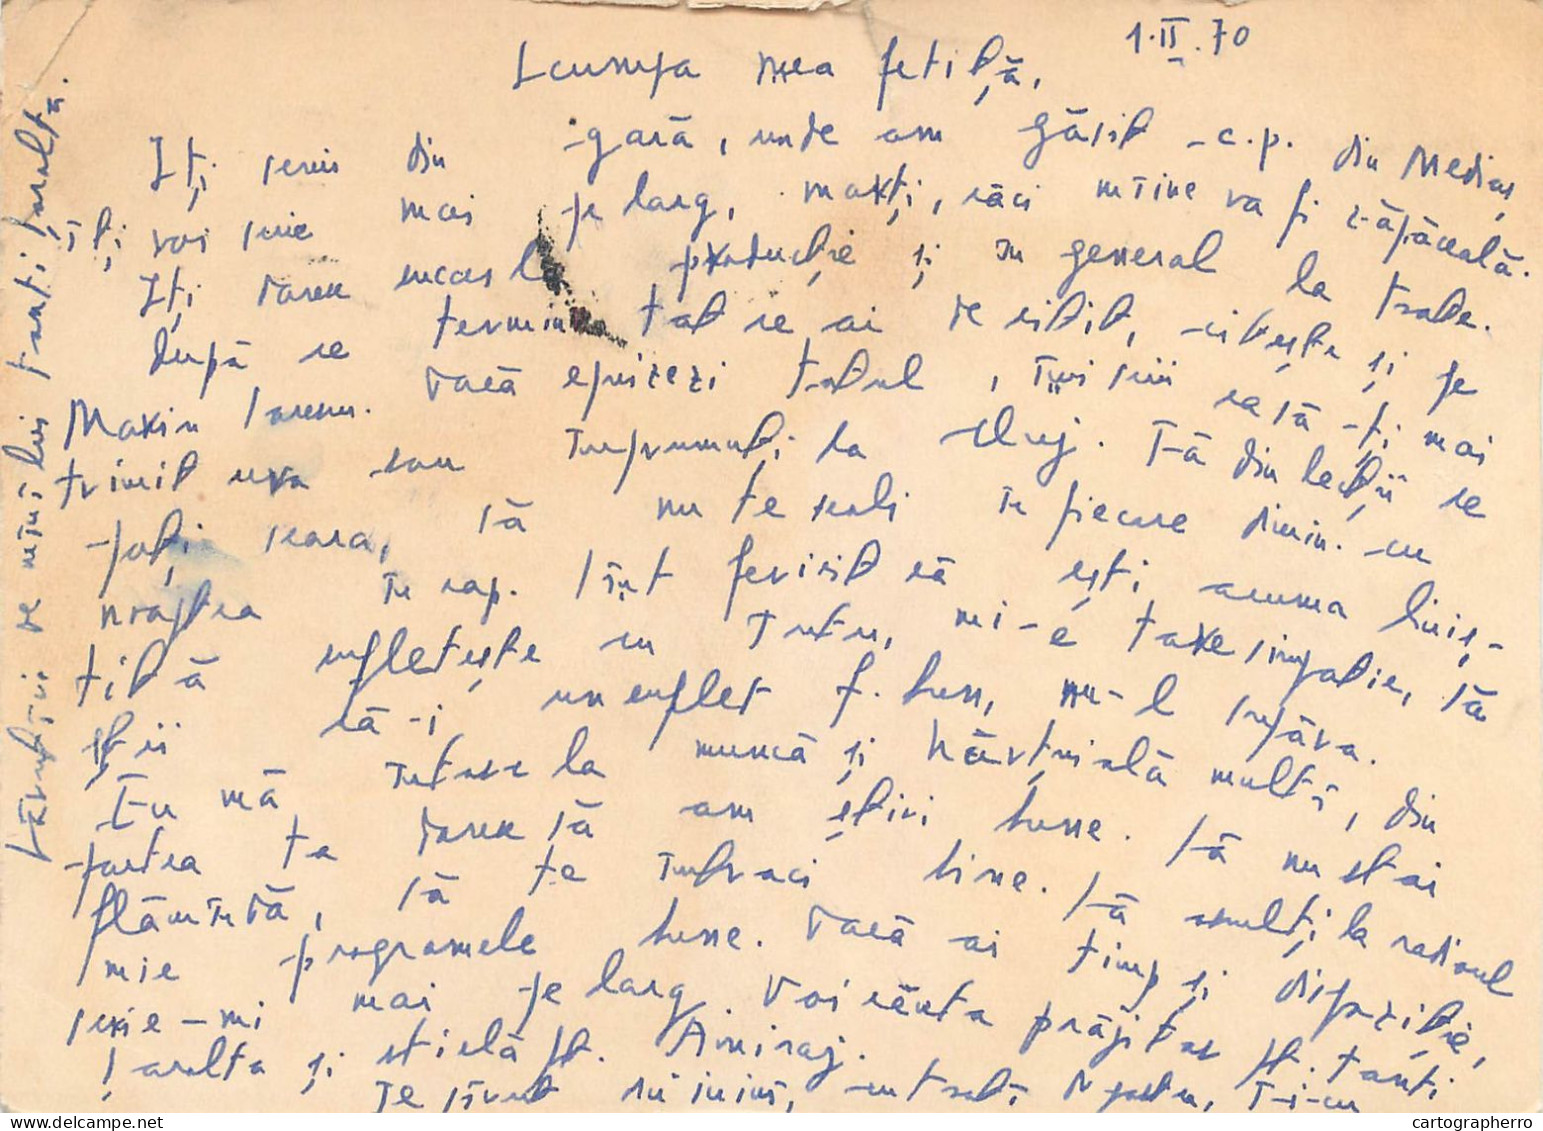 1.II.70
Scumpa mea fetiță,
Îți scriu din gară, unde am găsit c.p. din Mediaș,
îți voi scrie mai pe larg, marți, căci mîine va fi zăpăceală.
Îți doresc succes la producție și în general la toate.
după ce termini tot ce ai de citit, citește și pe
Maxin Sorescu. Dacă epuizezi totul, îmi scrii ca să-ți mai
trimit ceva sau împrumuți la Cluj. Să din lecții ce
poți seara, să nu te scoli în fiecare dimin. cu
noaptea în cap. Sînt fericit că ești acuma liniș-
tită sufletește cu Tutu, mi-e tare simpatic, să
știi că-i un suflet f. bun, nu-l supăra.
Eu mă întorc la muncă și hărțuială multă, din
partea ta doresc să am știri bune. Să nu stai
flămîndă, să te îmbraci bine. Să asculți la radioul
mic programele bune. Dacă ai timp și dispoziție,
scrie-mi mai pe larg. Voi căuta prăjitor pt. tanti
Saralta și sticlă pt. Amiraj.
Te sărut dulce,
Sărutări de mîini lui tanti Saralta.
cartographerro